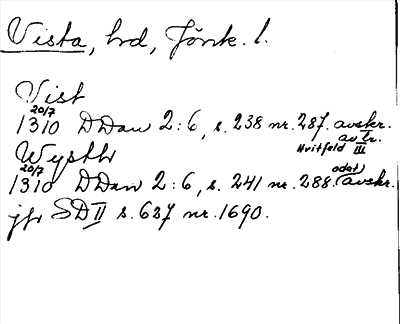 Vista, hd, Jönk. l.
Vist
20/7
1310 DDan 2:6, s. 238 nr. 287. avskr.
av tr.
Hvitfeld III
Wysthr
20/7 odat)
1310 DDan 2:6, s. 241 nr. 288. (avskr.
jfr SD II s. 637 nr. 1690.